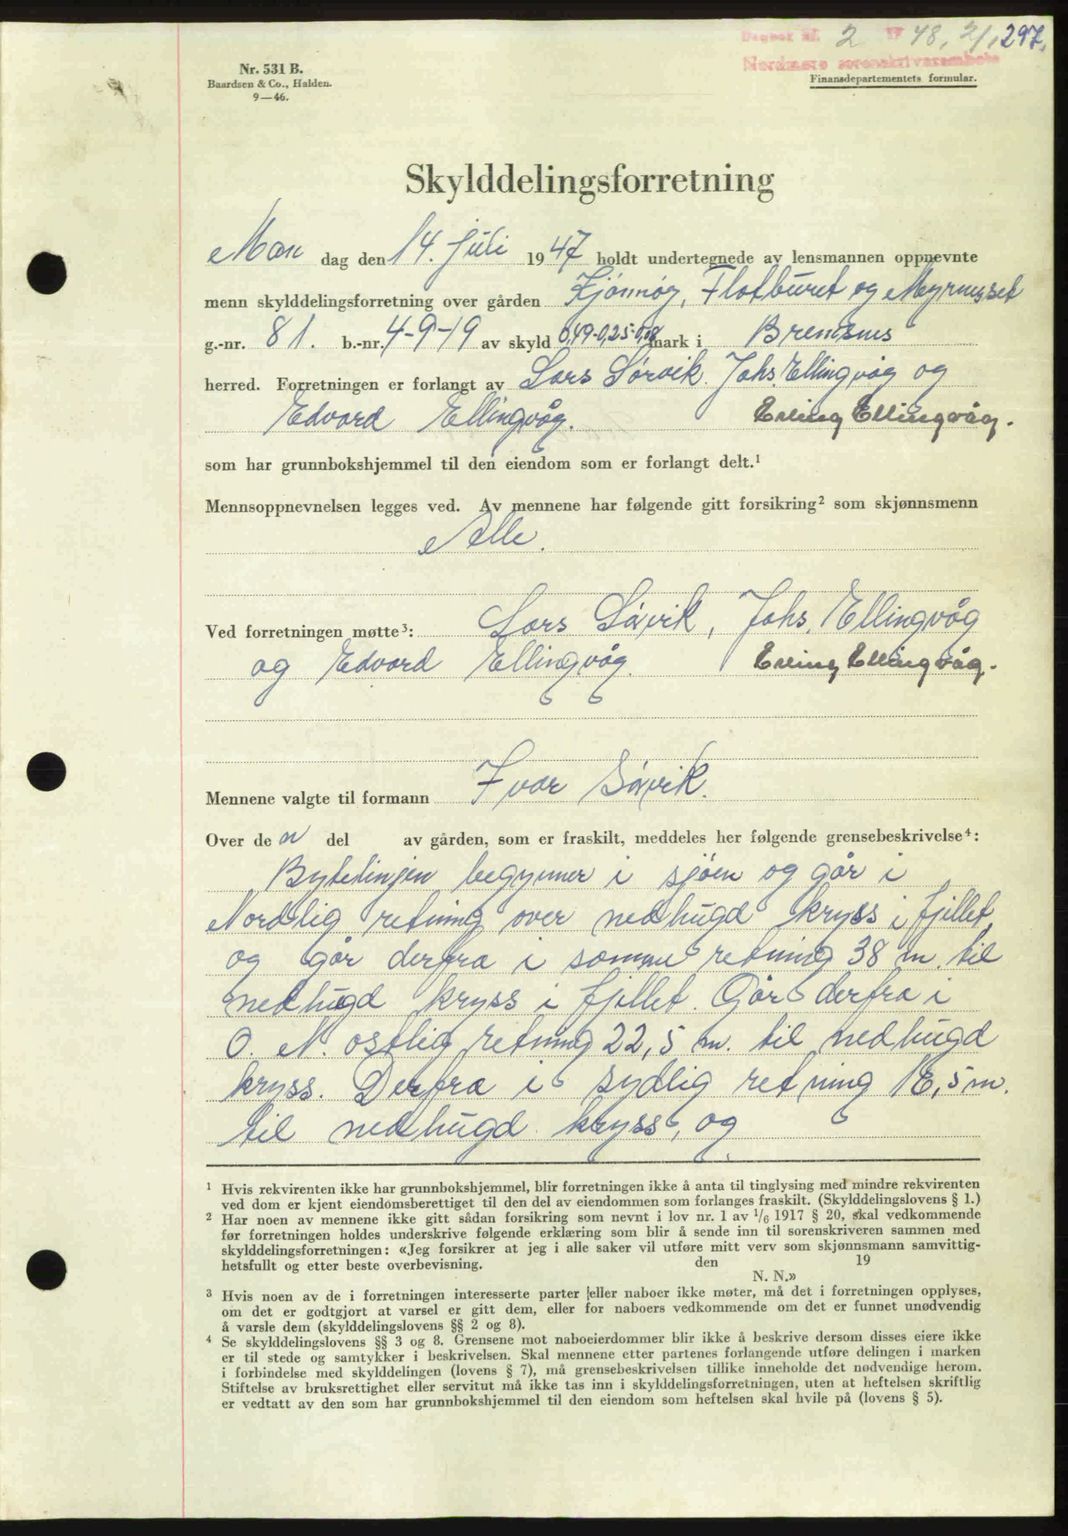 Dagbok nr. 2 19 48, 2/1, 297.
Nordmøre sorenskriverembete
Nr. 531 B.
Baardsen & Co., Halden.
9—46.
Finansdepartementets formular.
Skylddelingsforretning
Man dag den 14. juli 1947 holdt undertegnede av lensmannen oppnevnte
menn skylddelingsforretning over gården Kjønnøy, Flatburet og Myrnesset
g.-nr. 81. b.-nr. 4-9-19 av skyld 0,49-0,25-0,18 mark i Bremsnes
herred. Forretningen er forlangt av Lars Sørvik. Johs. Ellingvåg og
Edvard Ellingvåg. Erling Ellingvåg.
som har grunnbokshjemmel til den eiendom som er forlangt delt.¹
Mennsoppnevnelsen legges ved. Av mennene har følgende gitt forsikring² som skjønnsmenn
Alle.
Ved forretningen møtte³: Lars Søvik, Johs. Ellingvåg
og Edvard Ellingvåg. Erling Ellingvåg.
Mennene valgte til formann Ivar Søvik.
Over de n del av gården, som er fraskilt, meddeles her følgende grensebeskrivelse⁴:
Bytelinjen begynner i sjøen og går i
Nordlig retning over nedhugd kryss i fjellet,
og går derfra i samme retning 38 m. til
nedhugd kryss i fjellet. Går derfra i
O. N. ostlig retning 22,5 m. til nedhugd
kryss. Derfra i sydlig retning 18,5 m.
til nedhugd kryss, og
¹ Hvis rekvirenten ikke har grunnbokshjemmel, blir forretningen ikke å anta til tinglysing med mindre rekvirenten
ved dom er kjent eiendomsberettiget til den del av eiendommen som forlanges fraskilt. (Skylddelingslovens § 1.)
² Har noen av mennene ikke gitt sådan forsikring som nevnt i lov nr. 1 av 1/6 1917 § 20, skal vedkommende
før forretningen holdes underskrive følgende erklæring som blir å sende inn til sorenskriveren sammen med
skylddelingsforretningen: «Jeg forsikrer at jeg i alle saker vil utføre mitt verv som skjønnsmann samvittig-
hetsfullt og etter beste overbevisning. den 19
N. N.»
³ Hvis noen av de i forretningen interesserte parter eller naboer ikke møter, må det i forretningen opplyses,
om det er godtgjort at varsel er gitt dem, eller for naboers vedkommende om det er funnet unødvendig
å varsle dem (skylddelingslovens §§ 2 og 8).
⁴ Se skylddelingslovens §§ 3 og 8. Grensene mot naboeierdommer blir ikke å beskrive dersom disses eiere ikke
er til stede og samtykker i beskrivelsen. Skal mennene etter partenes forlangende utføre delingen i marken
i forbindelse med skylddelingen (lovens § 7), må grensebeskrivelsen tillike inneholde det nødvendige herom.
Stiftelse av bruksrettighet eller servitut må ikke tas inn i skylddelingsforretningen, uten at heftelsen skriftlig
er vedtatt av den som har grunnbokshjemmel til den eiendom som heftelsen skal hvile på (lovens § 5).